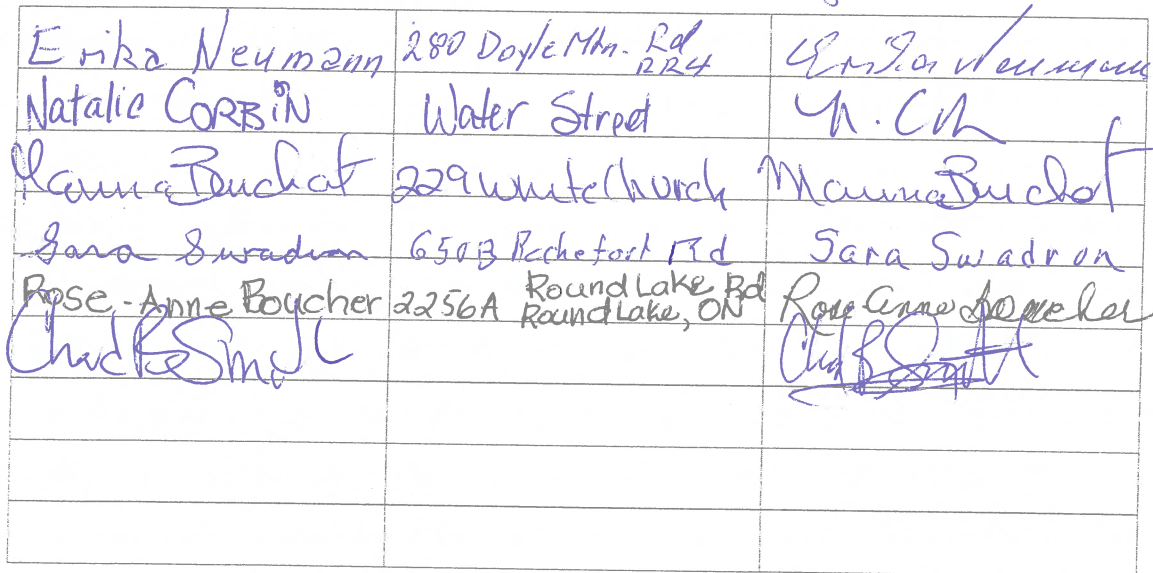 Erika Neumann 280 Doyle Mtn. Rd RR4 Erika Neumann
Natalie CORBiN Water Street N. C
Mauna Buchat 229 White Church Mauna Buchat
Sara Swadron 650B Rochefort Rd Sara Swadron
Rose-Anne Boucher 2256A Round Lake Rd Round Lake, ON Rose Anne Boucher
Chad B Smith Chad B Smith